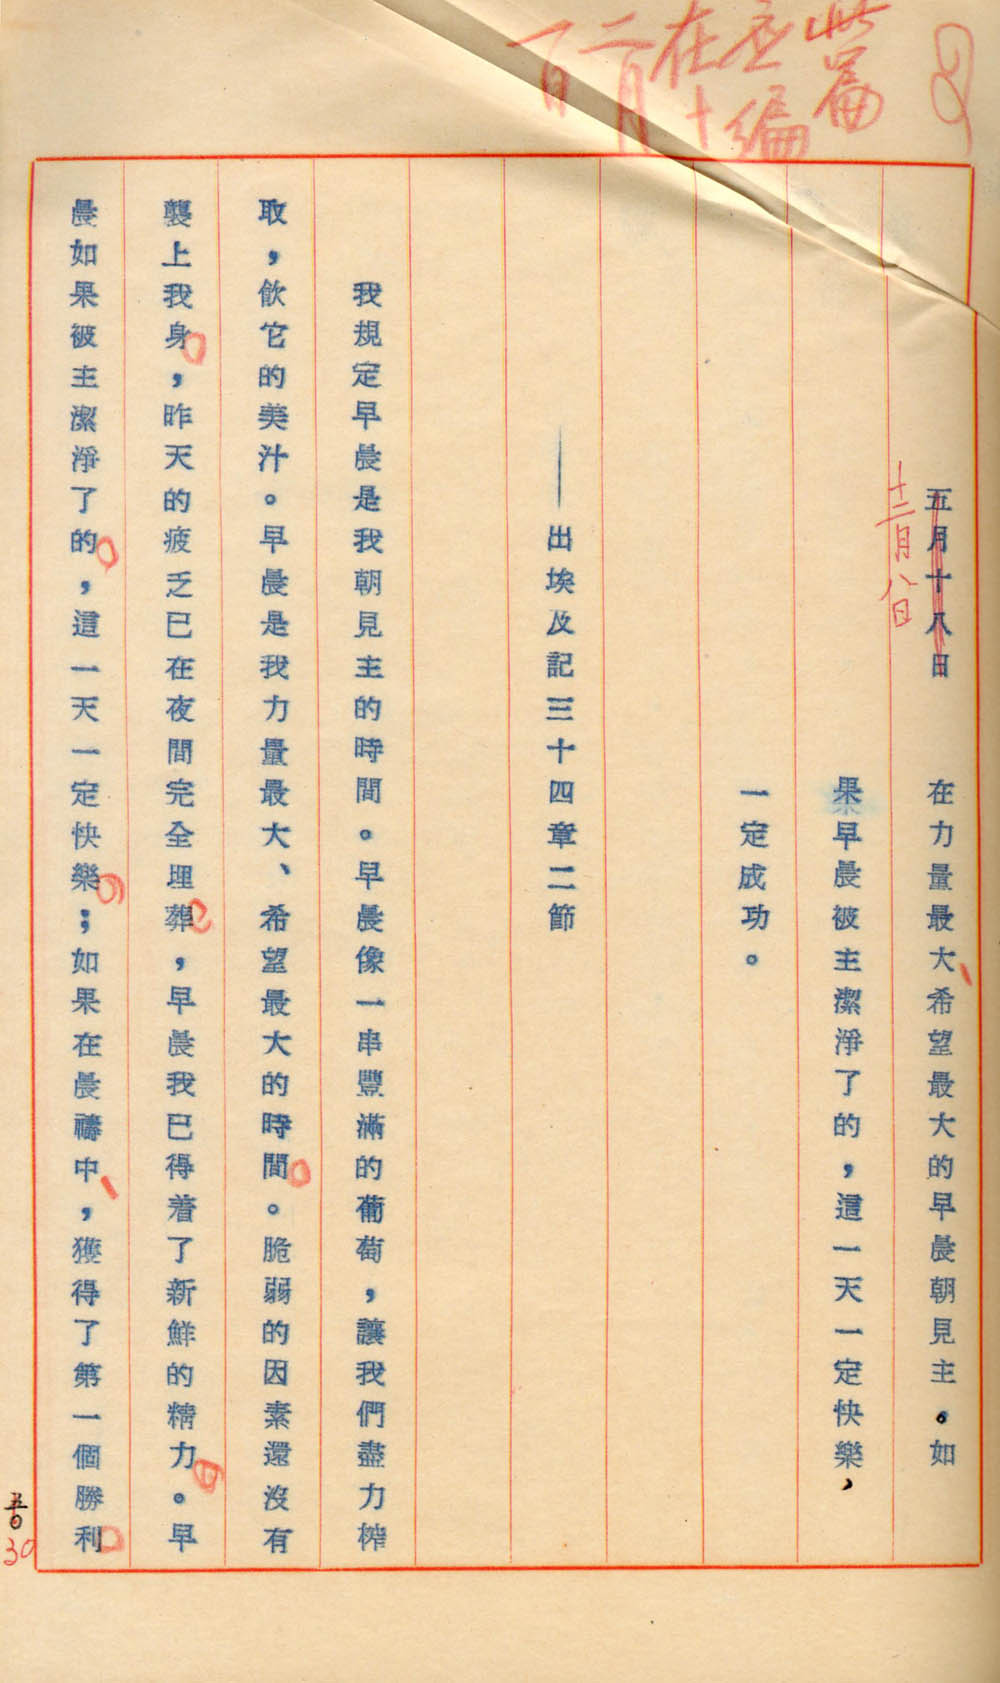 此篇
應編
在十
二月
一日
五月十八日
十二月八日
在力量最大希望最大的早晨朝見主。如
果早晨被主潔淨了的，這一天一定快樂、
一定成功。
——出埃及記三十四章二節
我規定早晨是我朝見主的時間。早晨像一串豐滿的葡萄，讓我們盡力榨
取，飲它的美汁。早晨是我力量最大、希望最大的時間。脆弱的因素還沒有
襲上我身，昨天的疲乏已在夜間完全埋葬，早晨我已得着了新鮮的精力。早
晨如果被主潔淨了的，這一天一定快樂；如果在晨禱中，獲得了第一個勝利
30